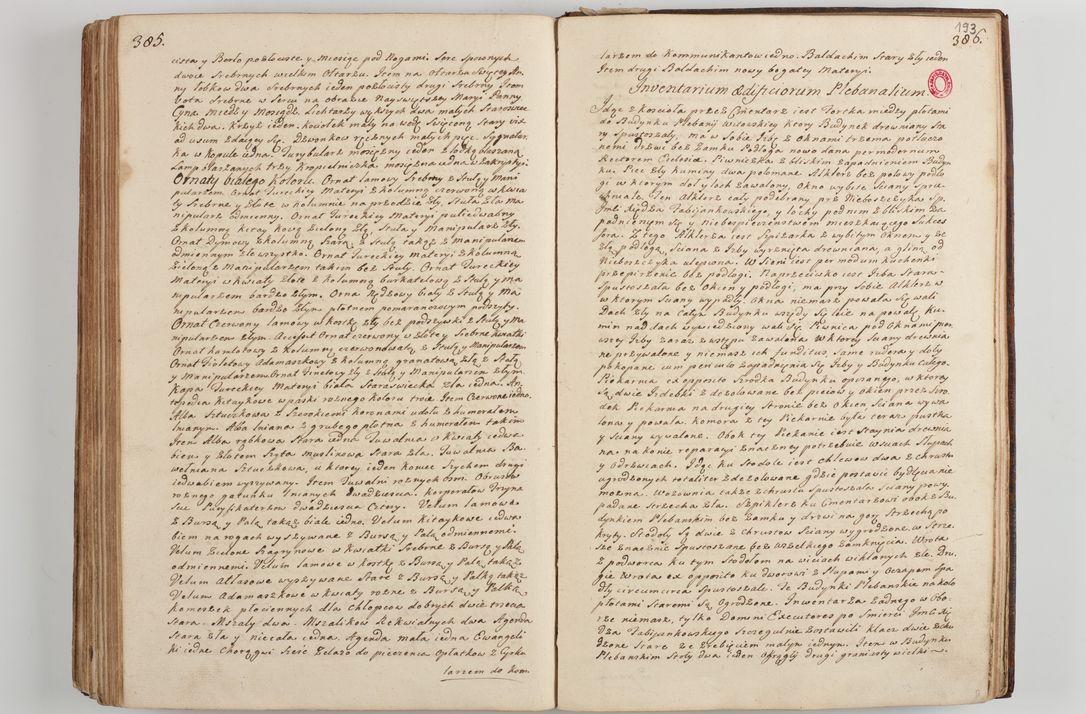 385.
cista y Berło pozłociste y Miesiąc pod Nogami. Serc Sporzonych
dwoie Srebrnych wielkim Ołtarzu. Item na Ołtarzu Swiętey An-
ny Tobkow dwa Srebrnych ieden pozłocisty drugi Srebrny Item
Vota Srebrne w Sercu na obrazie Nayswiętszey Maryi Panny
Cyna Miedź y Mosiądz. Lichtarzy wyższych dwa małych Staroswiec-
kich dwa. Krzyż ieden. Kociołek mały na wodę Swięconą Stary vix
ad usum zdaiący Się. Dzwonkow ręcznych małych pięc. Sygnatur-
ka w Kopule iedna. Turybularz mosiężny ieden z łodką blaszaną
Lamp Ołtarzanych trzy Kropielniczka mosiężna iedna w Zakrystyi.
Ornaty białego koloru. Ornat lamowy Srebrny z Stułą y Mani
pularzem. Ornat Tureckiey Materyi z kolumną czerwoną w kwia
ty Srebrne y Złote w kolumnie na przedzie zły, Stuła zła Ma-
nipularz odmienny. Ornat Tureckiey Materyi
z kolumną kitay kową zieloną zły, Stuła y Manipularz zły.
Ornat Dymowy z kolumną Szarą z Stułą takąż z Manipularzem
odmiennym złe wszystko. Ornat Tureckiey materyi z kolumną
zieloną z Manipularzem takim bez Stuły. Ornat Tureckiey
Materyi w kwiaty złote z kolumną burkatelową z Stułą y Ma
nipularzem bardzo złym. Ornat Nędzowy biały z Stułą y Ma-
nipularzem bardzo złym płotnem pomaranczowym podszyty.
Ornat Czerwony lamowy w kostkę zły bez podszywki z Stułą y Ma
nipularzem złym. Accessit Ornat czerwony w złote y Srebrne kwiatki
Ornat kamlotowy z Kolumną czerwonawatą z Stułą y Manipularzem
Ornat Fioletowy Adamaszkowy z kolumną granatową zły z Stułą
y Manipularzem Ornat Tynetowy zły z Stułą y Manipularzem złym.
Kapa Tureckiey Materyi biała Staroswiecka zła iedna. An-
topedia kitaykowe w paski rożnego koloru troie Item Czerwone iedno.
Alba Sztuczkowa z Szerokiemi koronami u dołu z humerałem
lnianym. Alba lniana z grubego płotna z humerałem takim
Item Alba rąbkowa stara iedna Tuwalnia w kwiaty iedwa-
biem y złotem Szyta muslinowa Stara zła. Tuwalnia Ba-
wołniana Sztuczkowa, u ktorey ieden koniec Szychem drugi
iedwabiem wyszywany. Item Tuwalni rożnych osm. Obrusow
rożnego gatunku lnianych dwadziescia. Korporałow Trzyna
scie Puryfikaterzow dwadziescia Cztery. Velum lamowe
z Bursą y Pallą takąż białe iedno. Velum Kitaykowe iedwa-
biem na rogach wyszywane z Bursą y Pallą odmiennemi.
Velum Zielone Szagrynowe w Kwiatki Srebrne z Bursą y Pallą
odmiennemi. Velum lamowe w kostkę z Bursą y Pallą takąż
Velum Atłasowe wyszywane Stare z Bursą y Palką takąż
Velum Adamaszkowe w kwiaty rożne z Bursą y Palką
Komeżek płociennych dla Chłopcow dobrych dwie trzecia
Stara. Mszały dwa. Mszalikow Rekwialnych dwa Agenda
Stara zła y niecała iedna. Agenda mała iedna Ewangeli
ki iedne Chorągwi Szesc Zelazo do pieczenia Opłatkow z Cyrku
larzem do Kom.
193
386.
larzem do Kommunikantow iedno. Baldachim Stary zły ieden
Item drugi Baldachim nowy bogatey Materyi.
Inventarium Ædificiorum Plebanalium.
Idąc z kościoła przez Cmentarz iest Fortka między płotami
do Budynku Plebanii Ktory Budynek drewniany Sta
ry Spustoszały, ma w Sobie Izbę z Oknami trzema potłuczo
nemi drzwi bez Zamku Podłoga nowo dana per modernum
Rectorem Ecclesiæ. Piwniczka z bliskim zapadnieniem Budyn
ku. Piec zły kuminy dwa połomane Alkierz bez połowy podło
gi w ktorym doł y loch zawalony, Okno wybite Sciany Spru-
chniałe. Ten Alkierz cały podebrany prz Nieboszczyka Jp.
Jmć Xiędza Fabijankowskiego, y lochy pod nim z bliskim za-
padnieniem Się y Niebespieczenstwem mieszkaiącego Sukces
sora. Z tego Alkierza iest Spiżarka z wybitym Oknem y ze
złą podłogą, Sciana z Izby wyrznięta drewniana, a gliną od
Nieboszczyka ulepiona. W Sieni iest per modum kuchenki
przepierzenie bez podłogi. Naprzeciwko iest Izba Stara-
Spustoszała bez Okien y podłogi, ma przy Sobie Alkierz w
w ktorym Sciany wypadły. Okna niemasz powała Się wali
Dach zły na całym Budynku wszędy Się leie na powałę ku-
min nad dach wywiedziony wali Się. Piwnica pod Oknami pier
wszey Izby zaraz z wstępu zawalona w ktorey Sciany drewnia
ne przywalone y niemasz ich funditus. Same rudera y doły
pokopane cum periculo zapadnienia Się Izby y Budynku całego.
Piekarnia ex opposito Szrodka Budynku opisanego, w ktorey
Są dwie Izdebki zdezolowane bez piecow y Okien przez Szro
dek Piekarnia na drugiey Stronie bez Okien Sciana wywa
lona y powała. Komora z tey Piekarnie była teraz pustka
y Sciany wywalone. Obok tey Piekarnie iest Staynia drewnia
na, na konie reparacyi znaczney potrzebuie w Scianach Słupach
y Odrzwiach. Idąc ku Stodole iest chlewow dwa z Chrustu
ogrodzonych totaliter zdezolowane gdzie postawić bydlęcia nie
można. Wozownia także z Chrustu Spustoszała Sciany powy-
padane Strzecha zła. Szpikierz ku Cmentarzowi obok z Bu
dynkiem Plebanskim bez Zamku y drzwi na gorę Strzechą po
kryty. Stodoły Są dwie z Chrustow Sciany wygrodzone, w Strze-
sze znacznie Spustoszane bez wszelkiego Zamknięcia. Wrota
z podworca ku tym Stodołom na wiciach wiklanych złe. Dru
gie Wrota ex opposito ku dworowi z Słupami y Oczapem Spa
dły circumcirca Spustoszałe. Te Budynki Plebanskie na koło
płotami Staremi Są Ogrodzone. Inwentarza żadnego w Obo-
rze niemasz, tylko Domini Executores po Smierci Jmć Xię
dza Fabijankowskiego Szczegulnie Zostawili klacz dwie zcho
dzone Stare ze Zrebięciem małym iednym. Item w Budynku
Plebanskim Stoły dwa ieden Okrągły drugi graniasty wielki